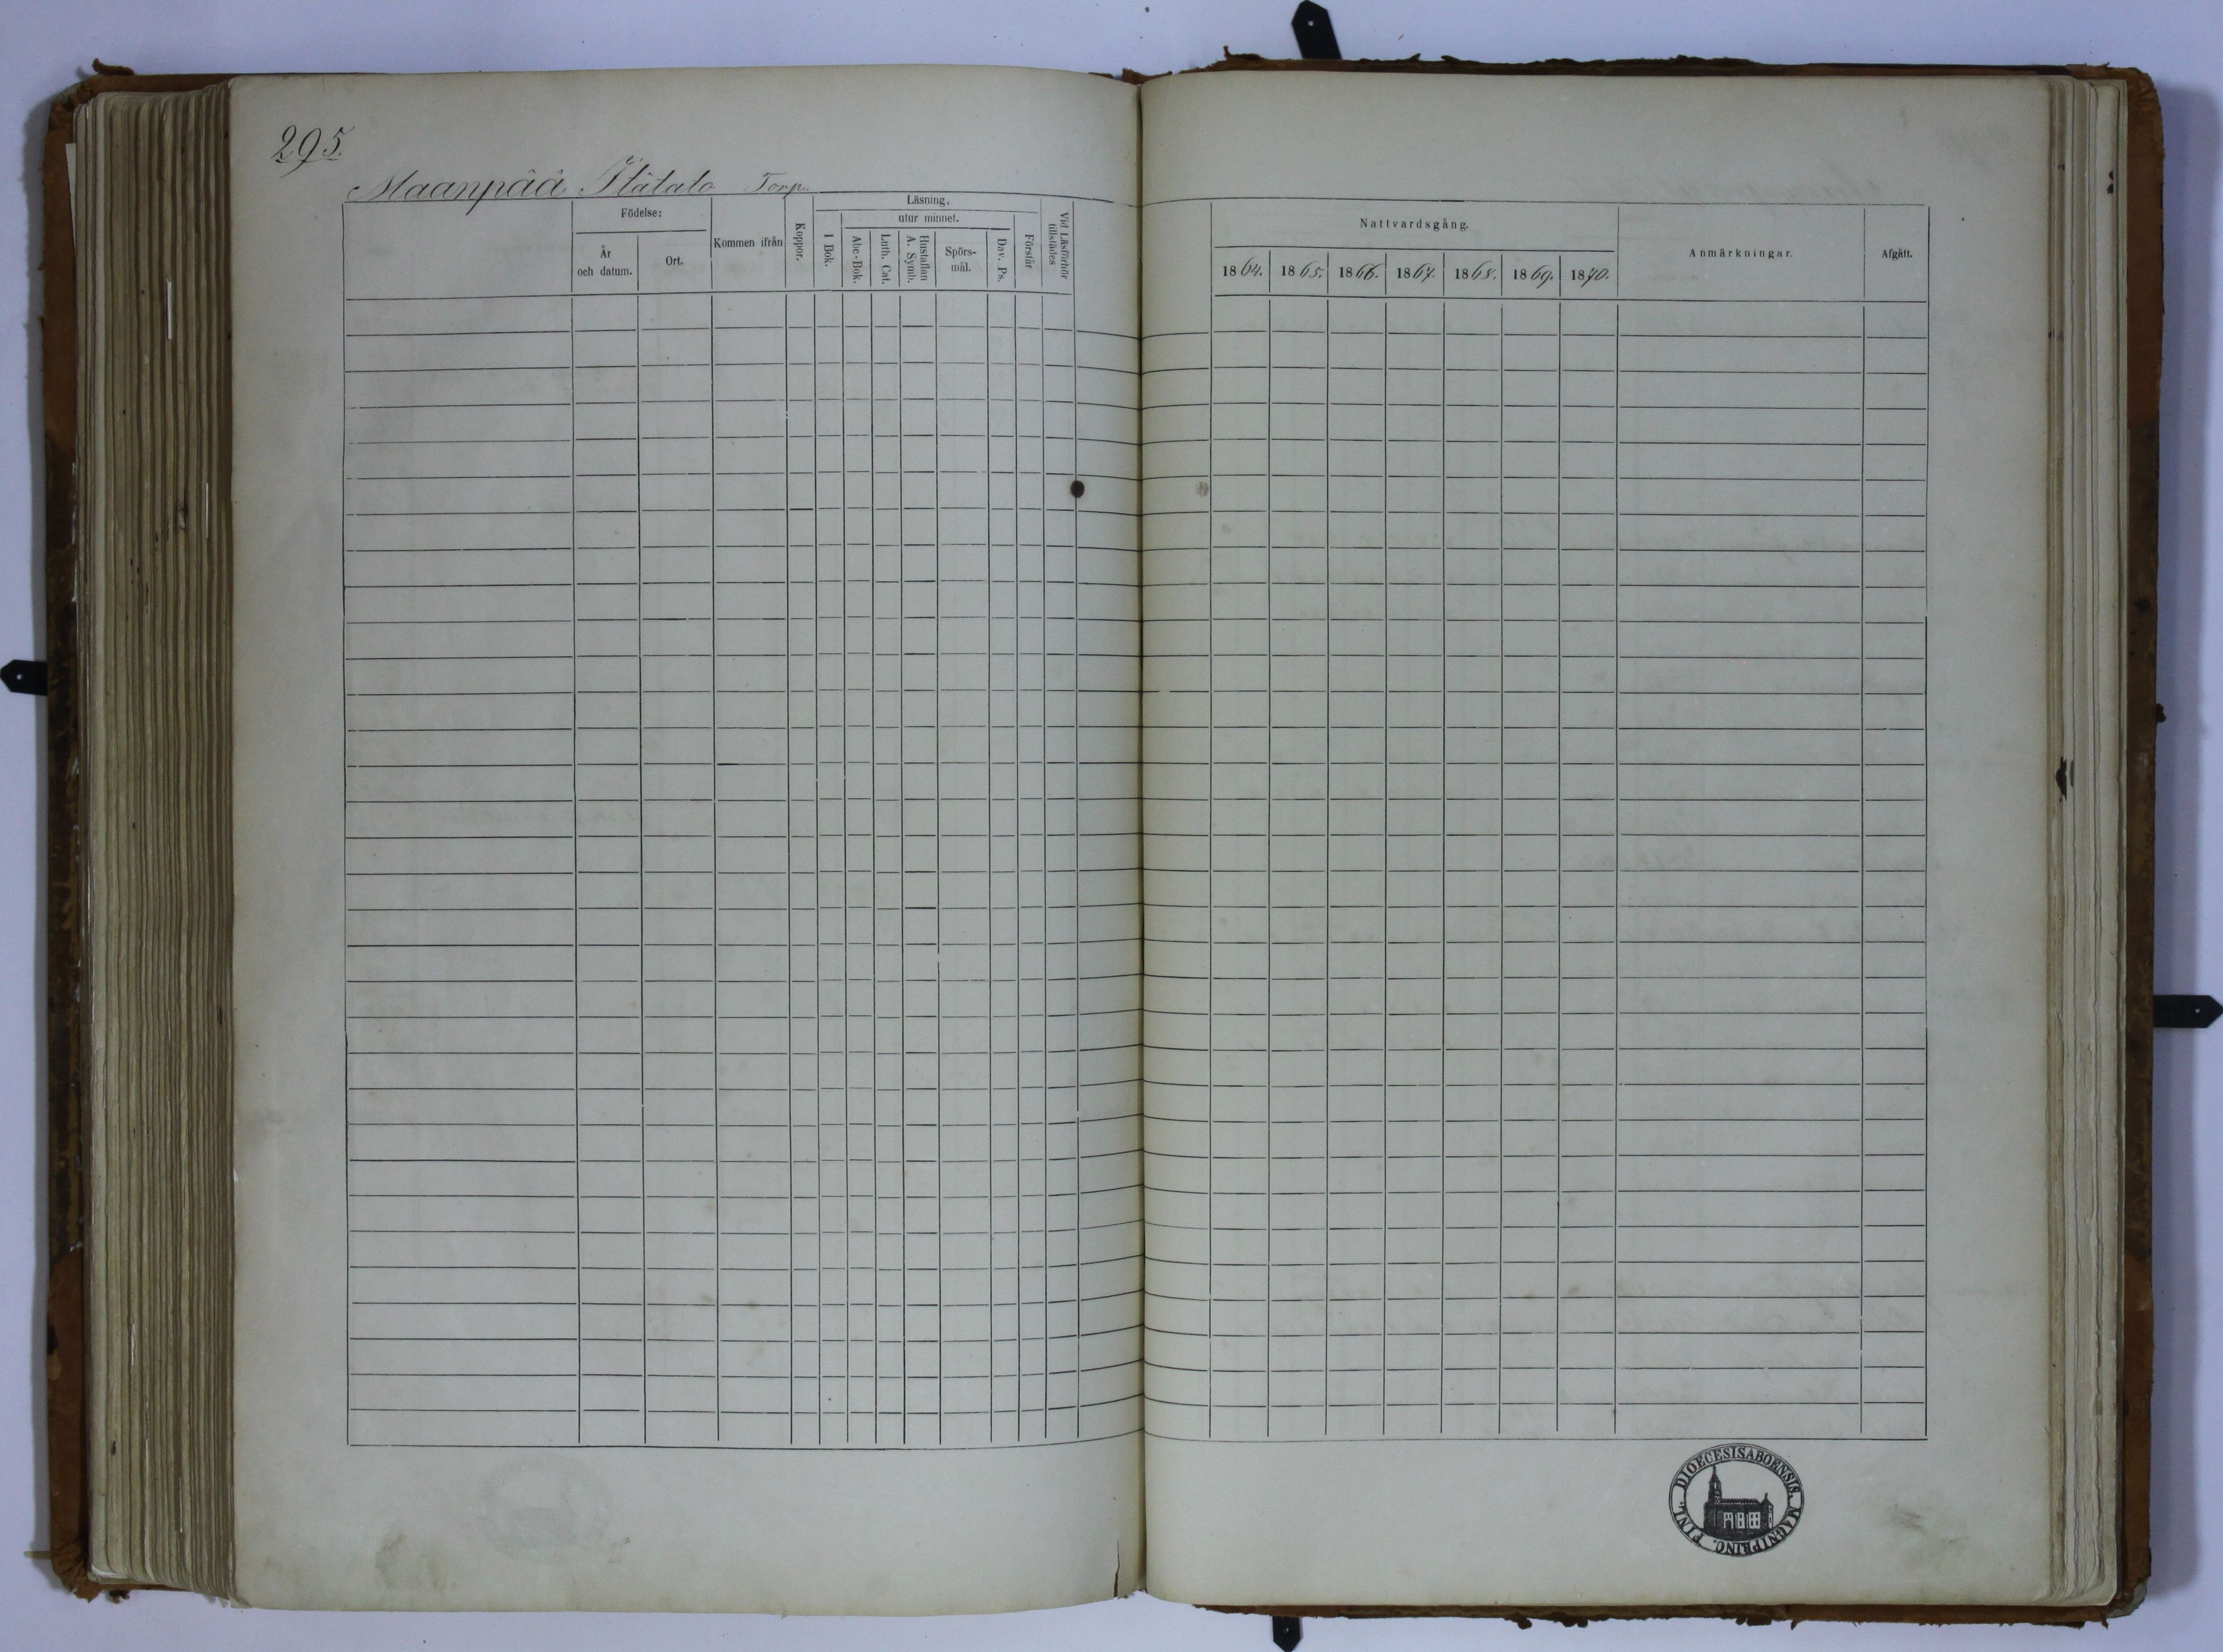 295.
Maanpää Ylätalo Torp.
Födelse:
År
och datum.
Ort.
Kommen ifrån
Koppor.
Läsning.
I Bok.
utur minnet.
Abc-Bok.
Luth. Cat.
Hustaflan
A. Symb.
Spörs-
mål.
Dav. Ps.
Förstår
Vid Läsförhör
tillstädes
Nattvardsgång.
1864. 1865. 1866. 1867. 1868. 1869. 1870.
Anmärkningar.
Afgått.
DIOECESIS ABOENSIS. MAGNI PRINC. FINL.